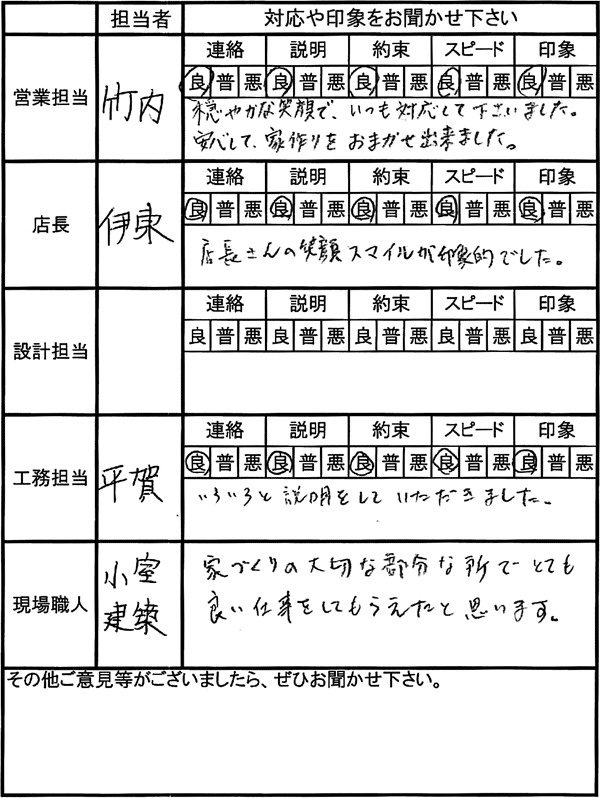 担当者 対応や印象をお聞かせ下さい
営業担当 竹内
連絡 説明 約束 スピード 印象
良 普 悪 良 普 悪 良 普 悪 良 普 悪 良 普 悪
穏やかな笑顔で、いつも対応して下さいました。
安心して、家作りをおまかせ出来ました。
店長 伊東
連絡 説明 約束 スピード 印象
良 普 悪 良 普 悪 良 普 悪 良 普 悪 良 普 悪
店長さんの笑顔スマイルが印象的でした。
設計担当
連絡 説明 約束 スピード 印象
良 普 悪 良 普 悪 良 普 悪 良 普 悪 良 普 悪
工務担当 平賀
連絡 説明 約束 スピード 印象
良 普 悪 良 普 悪 良 普 悪 良 普 悪 良 普 悪
いろいろと説明をしていただきました。
現場職人 小室
建築
家づくりの大切な部分な所でとても
良い仕事をしてもらえたと思います。
その他ご意見等がございましたら、ぜひお聞かせ下さい。